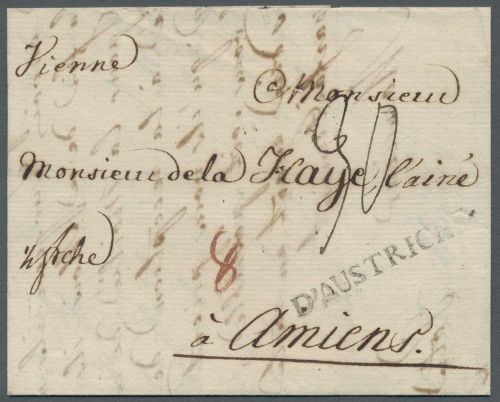 Vienne
a Monsieur
30
Monsieur de la Haye l'ainé
frche
8
D'AUSTRICHE
à Amiens.